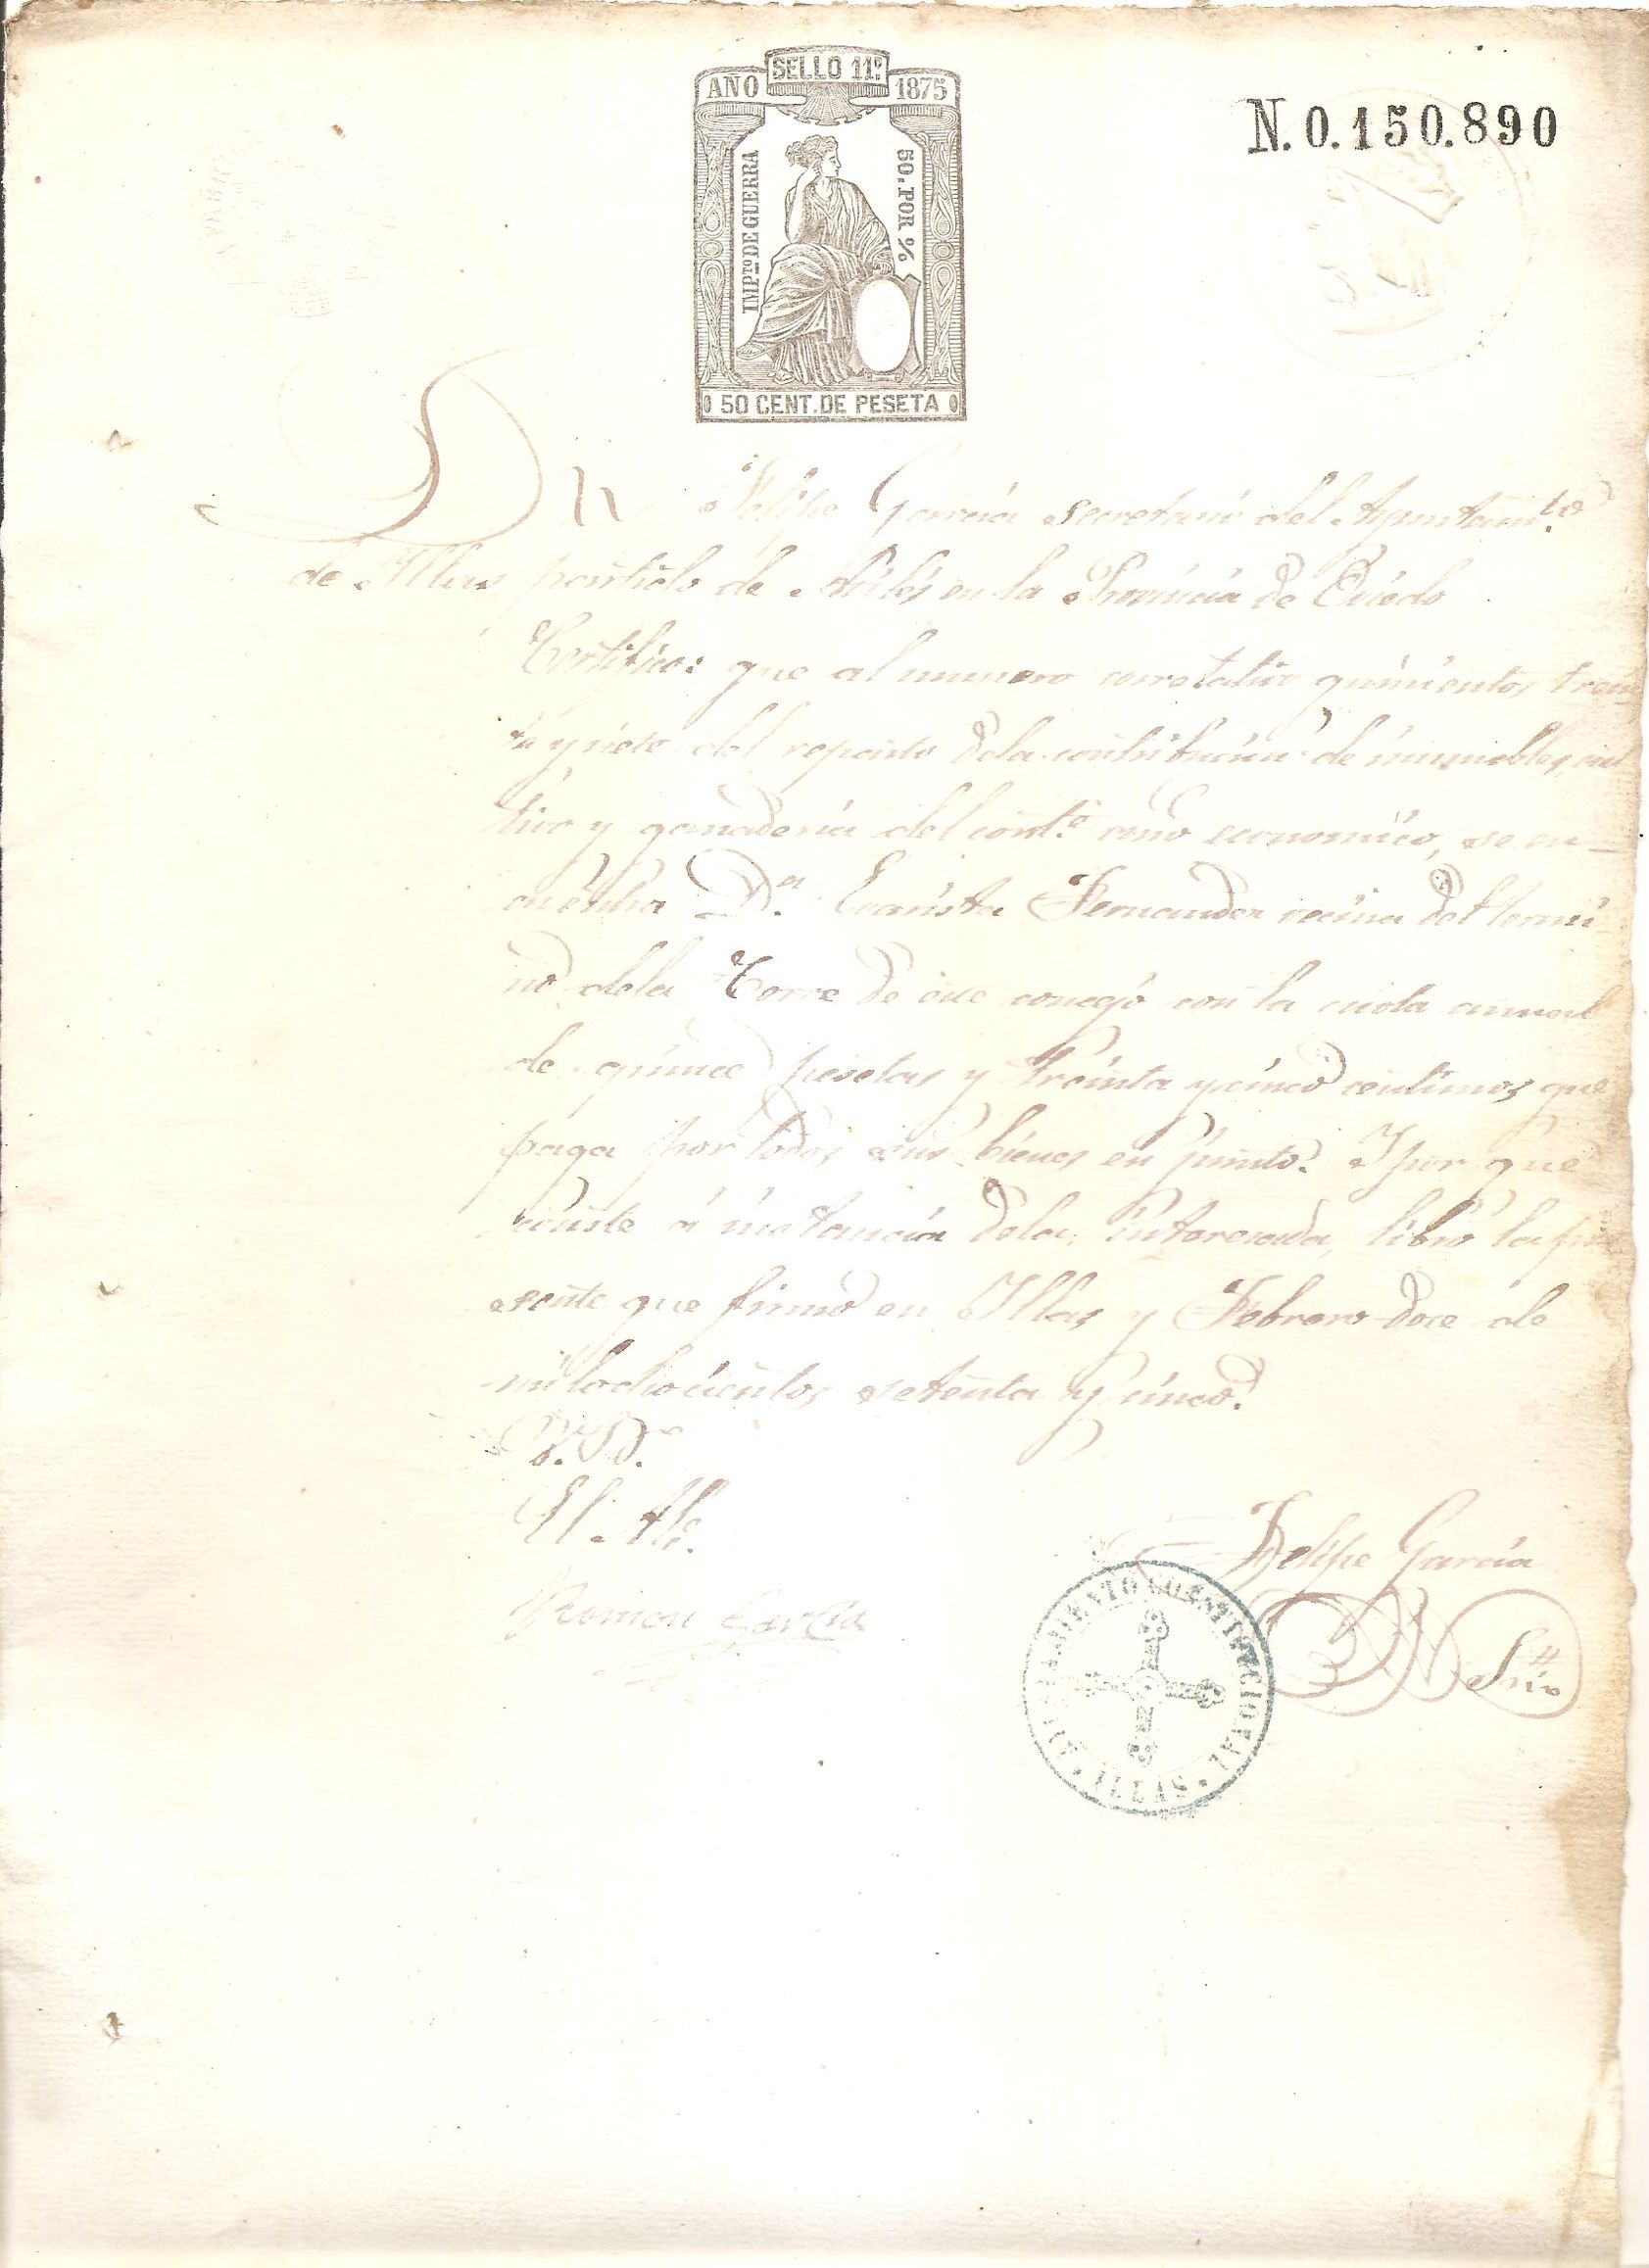 SELLO 11º
AÑO 1875
N. 0.150.890
IMPTO DE GUERRA
50. POR %
50 CENT. DE PESETA
Dn Felipe Garcia secretario del Ayuntamto
de Illas partido de Aviles en la Provincia de Oviedo
Certifico: que al numero correlativo quinientos trein
ta y siete del reparto dela contribucion de inmuebles, cul
tivo y ganaderia del corrte. año economico, se en-
cuentra Da. Evarista Fernandez vecina del termi
no dela Torre de este concejo con la cuota anual
de quince pesetas y treinta y cinco centimos que
paga por todos sus bienes en junto. Y por que
conste á instancia dela interesada, libro la pre
sente que firmo en Illas y Febrero doce de
mil ochocientos setenta y cinco.
V. B.
El Alc.
Felipe Garcia
Ramon Garcia
Srio
CONSTITUCIONAL
ILLAS